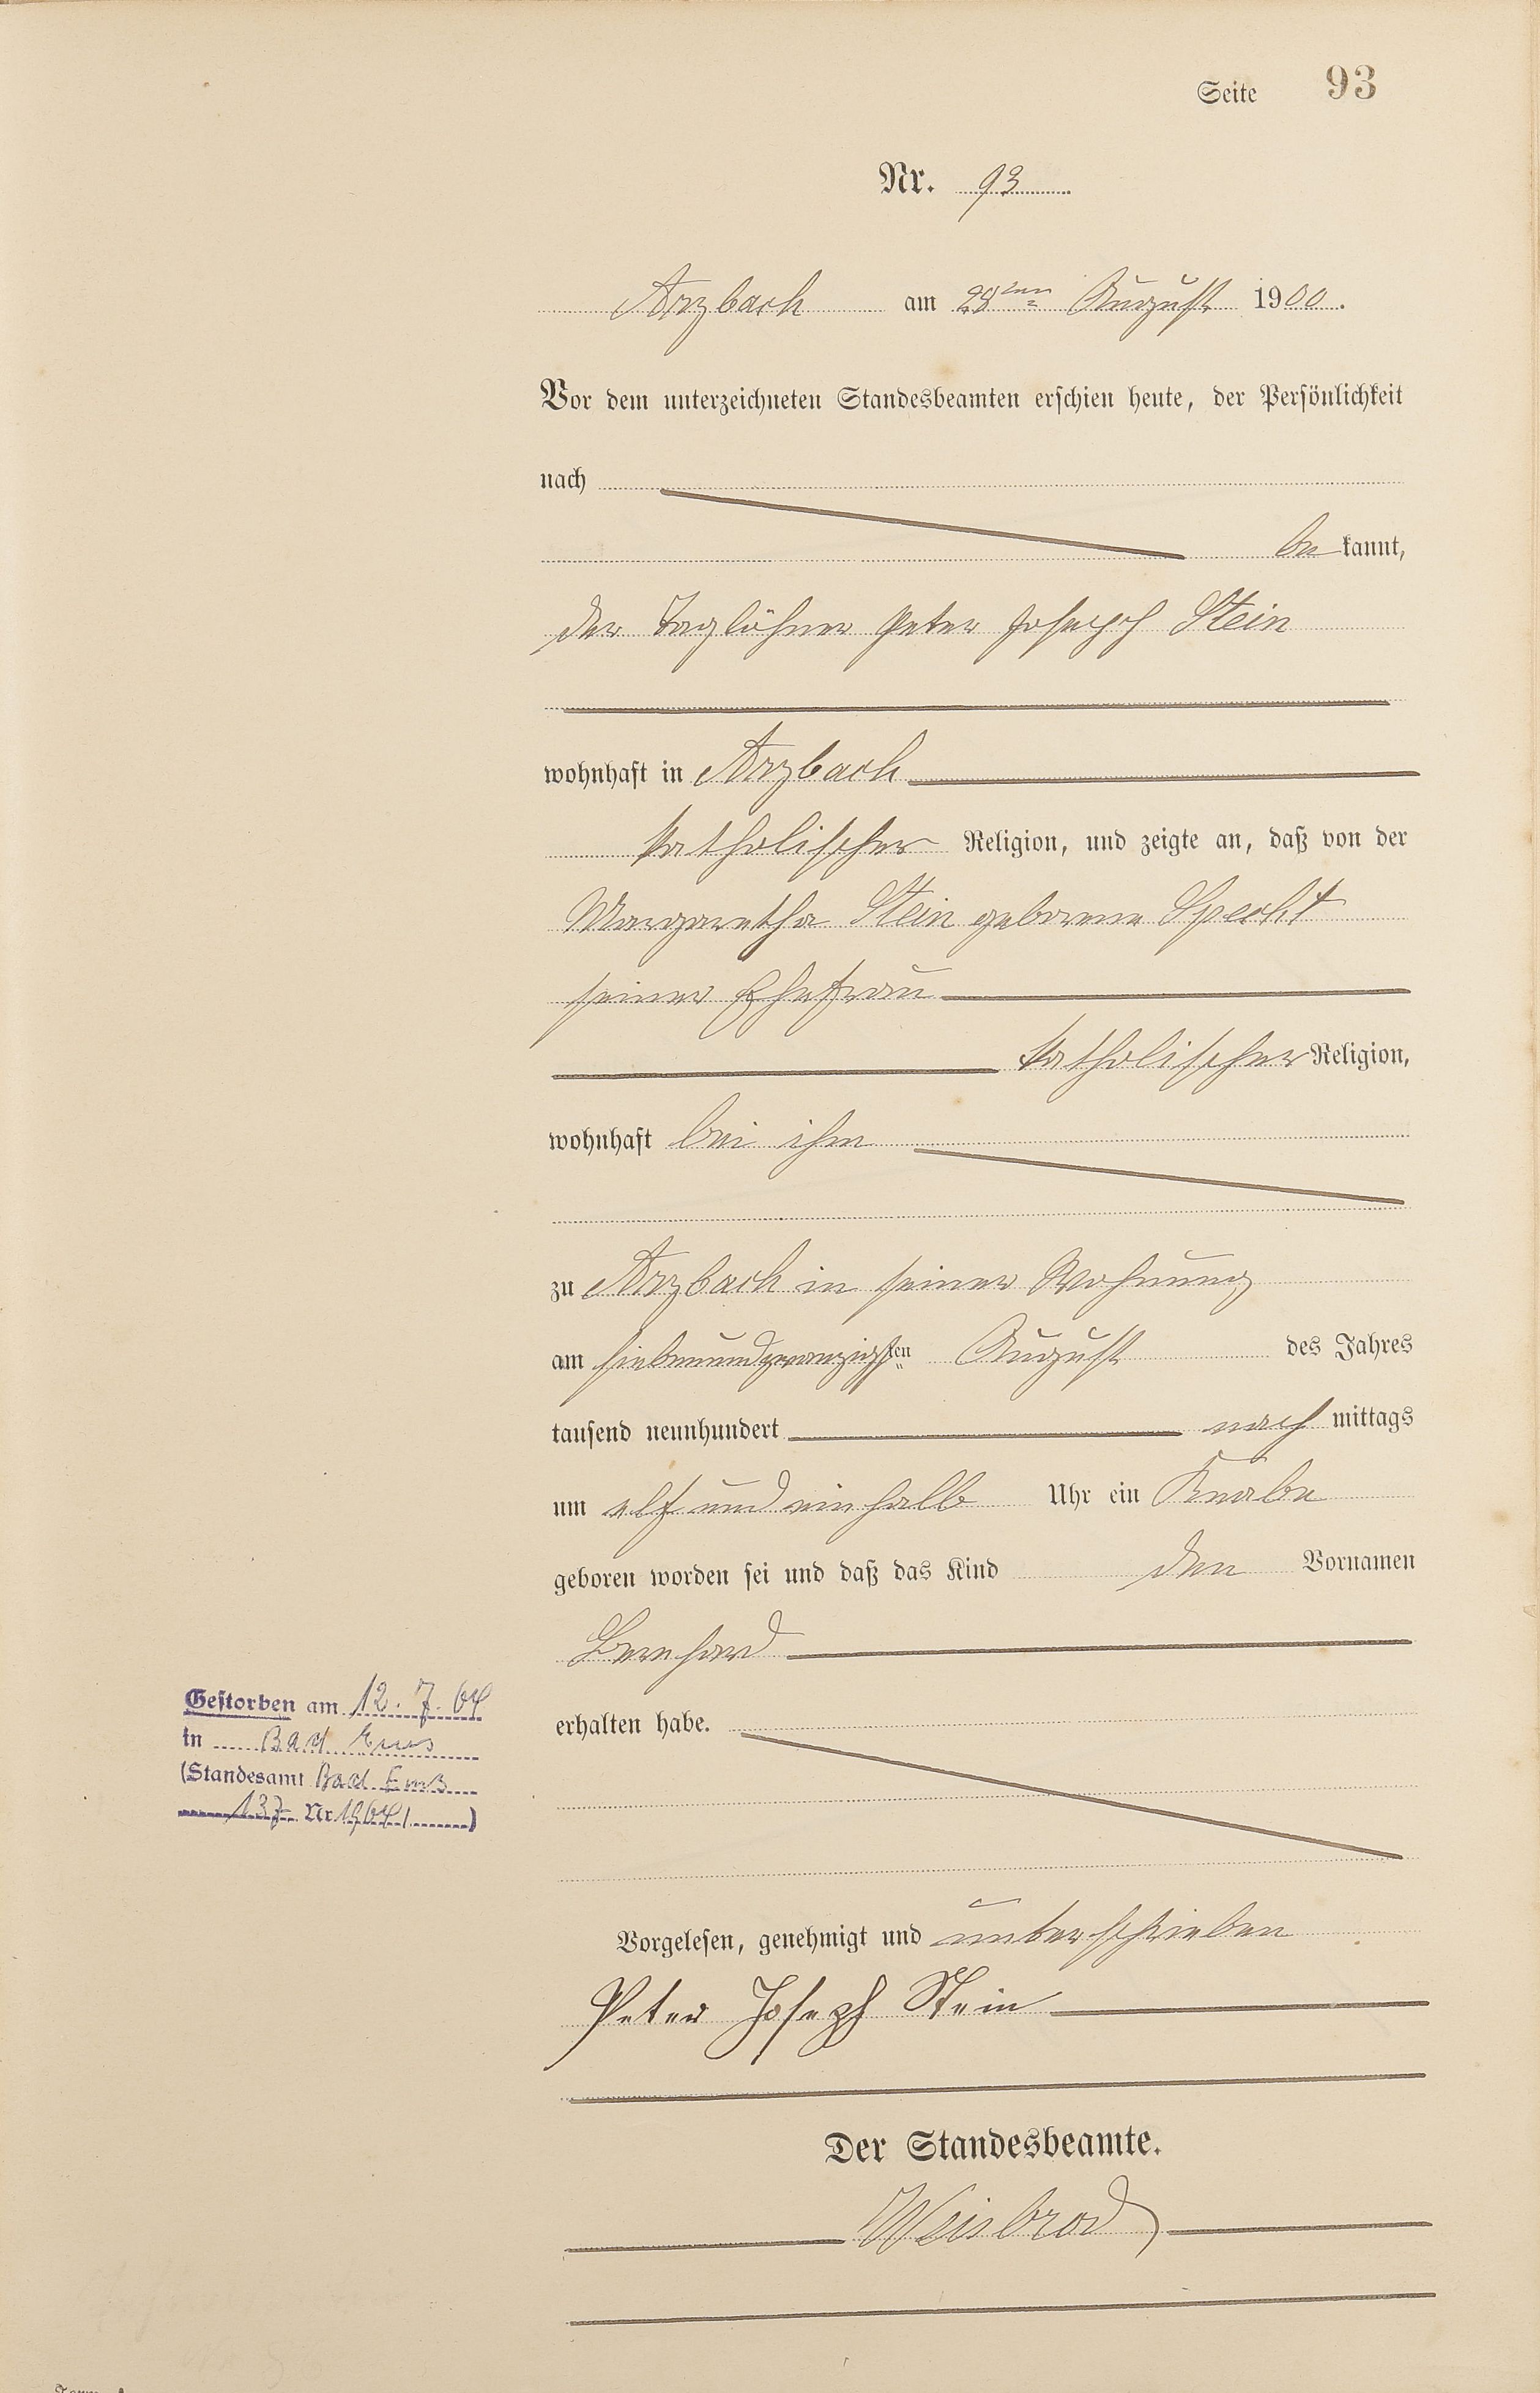 Seite 93
Nr. 93
Arzbach am 28ten August 1900.
Vor dem unterzeichneten Standesbeamten erschien heute, der Persönlichkeit
nach
be kannt,
der Taglöhner Peter Joseph Stein
wohnhaft in Arzbach
katholischer Religion, und zeigte an, daß von der
Margaretha Stein geborene Specht
seiner Ehefrau
katholischer Religion,
wohnhaft bei ihm
zu Arzbach in seiner Wohnung
am siebenundzwanzigsten August des Jahres
tausend neunhundert nach mittags
um elf und ein halb Uhr ein Knabe
geboren worden sei und daß das Kind den Vornamen
Bernhard
Gestorben am 12. 7. 64
in Bad Ems
(Standesamt Bad Ems
137 Nr. 1964)
erhalten habe.
Vorgelesen, genehmigt und unterschrieben
Peter Joseph Stein
Der Standesbeamte.
Weisbrod